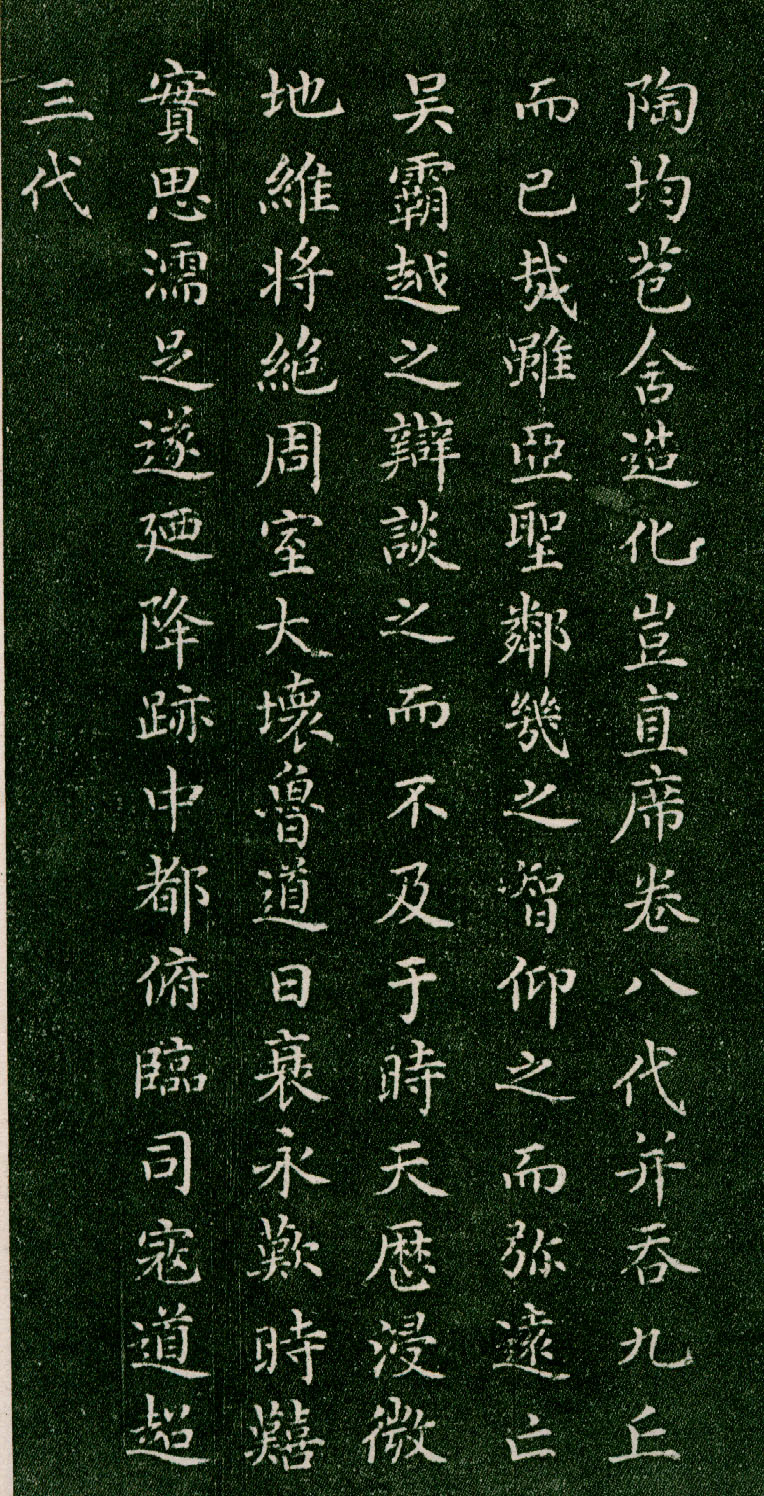 陶均苞含造化豈直席卷八代并吞九丘
而已哉雖亞聖鄰幾之智仰之而弥遠亡
吴霸越之辯談之而不及于時天歷浸微
地維將絕周室大壞魯道日衰永歎時囏
實思濡足遂廼降跡中都俯臨司寇道超
三代